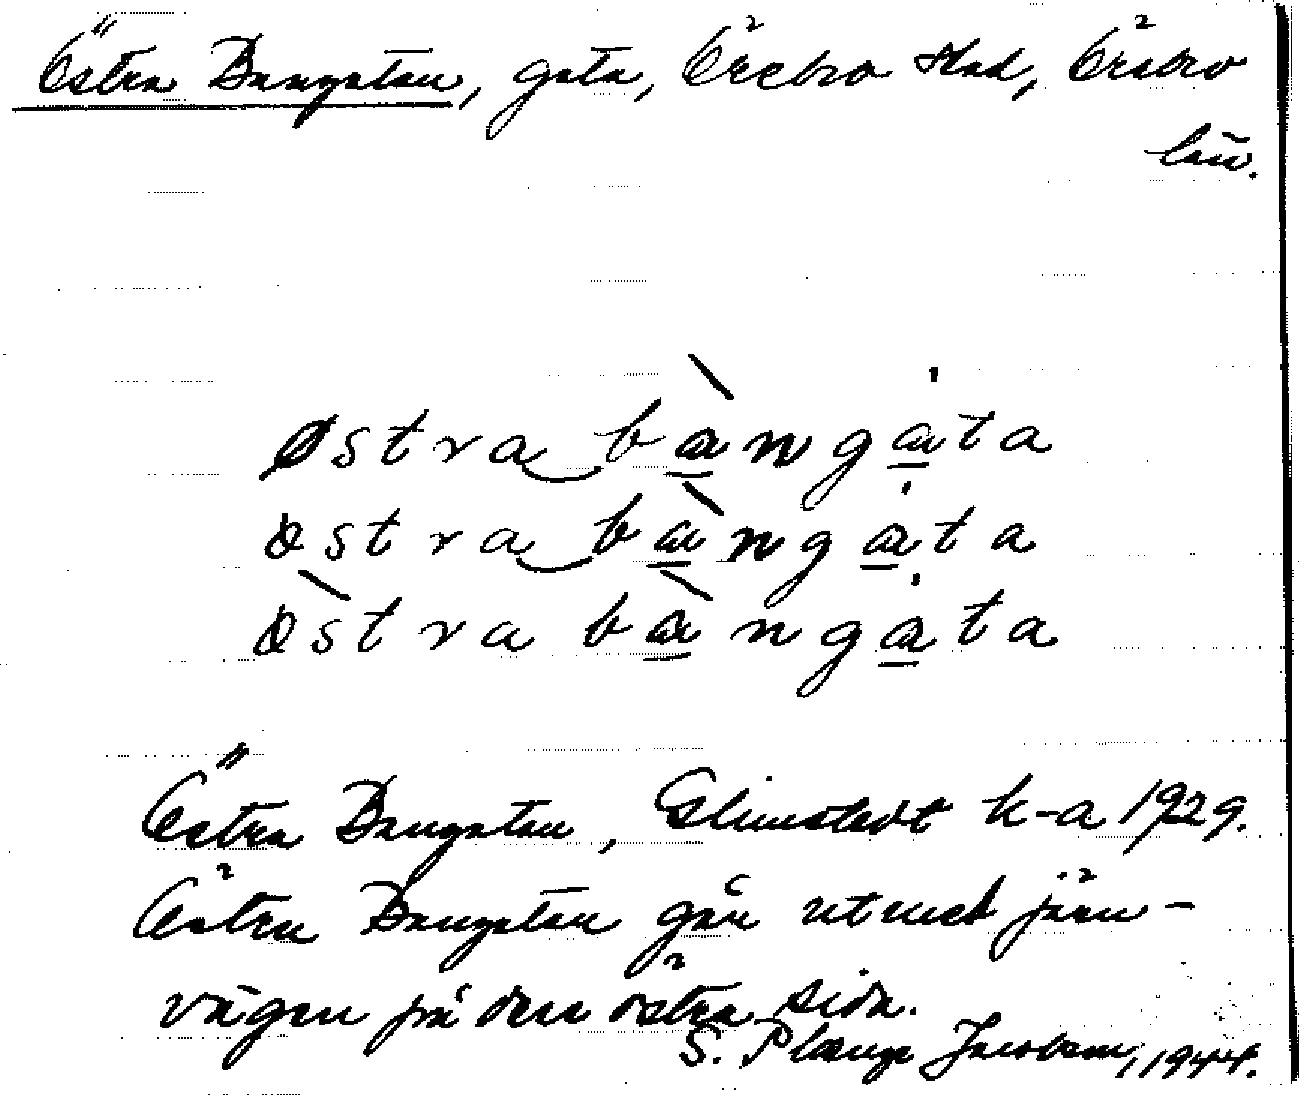 Östra Bangatan, gata, Örebro stad, Örebro
län.
østra bàngáta
östra bàngáta
östra bàngáta
Östra Bangatan, Glimstedt k-a 1929.
Östra Bangatan går utmed järn-
vägen på dess östra sida.
S. Plænge Jacobson, 1944.